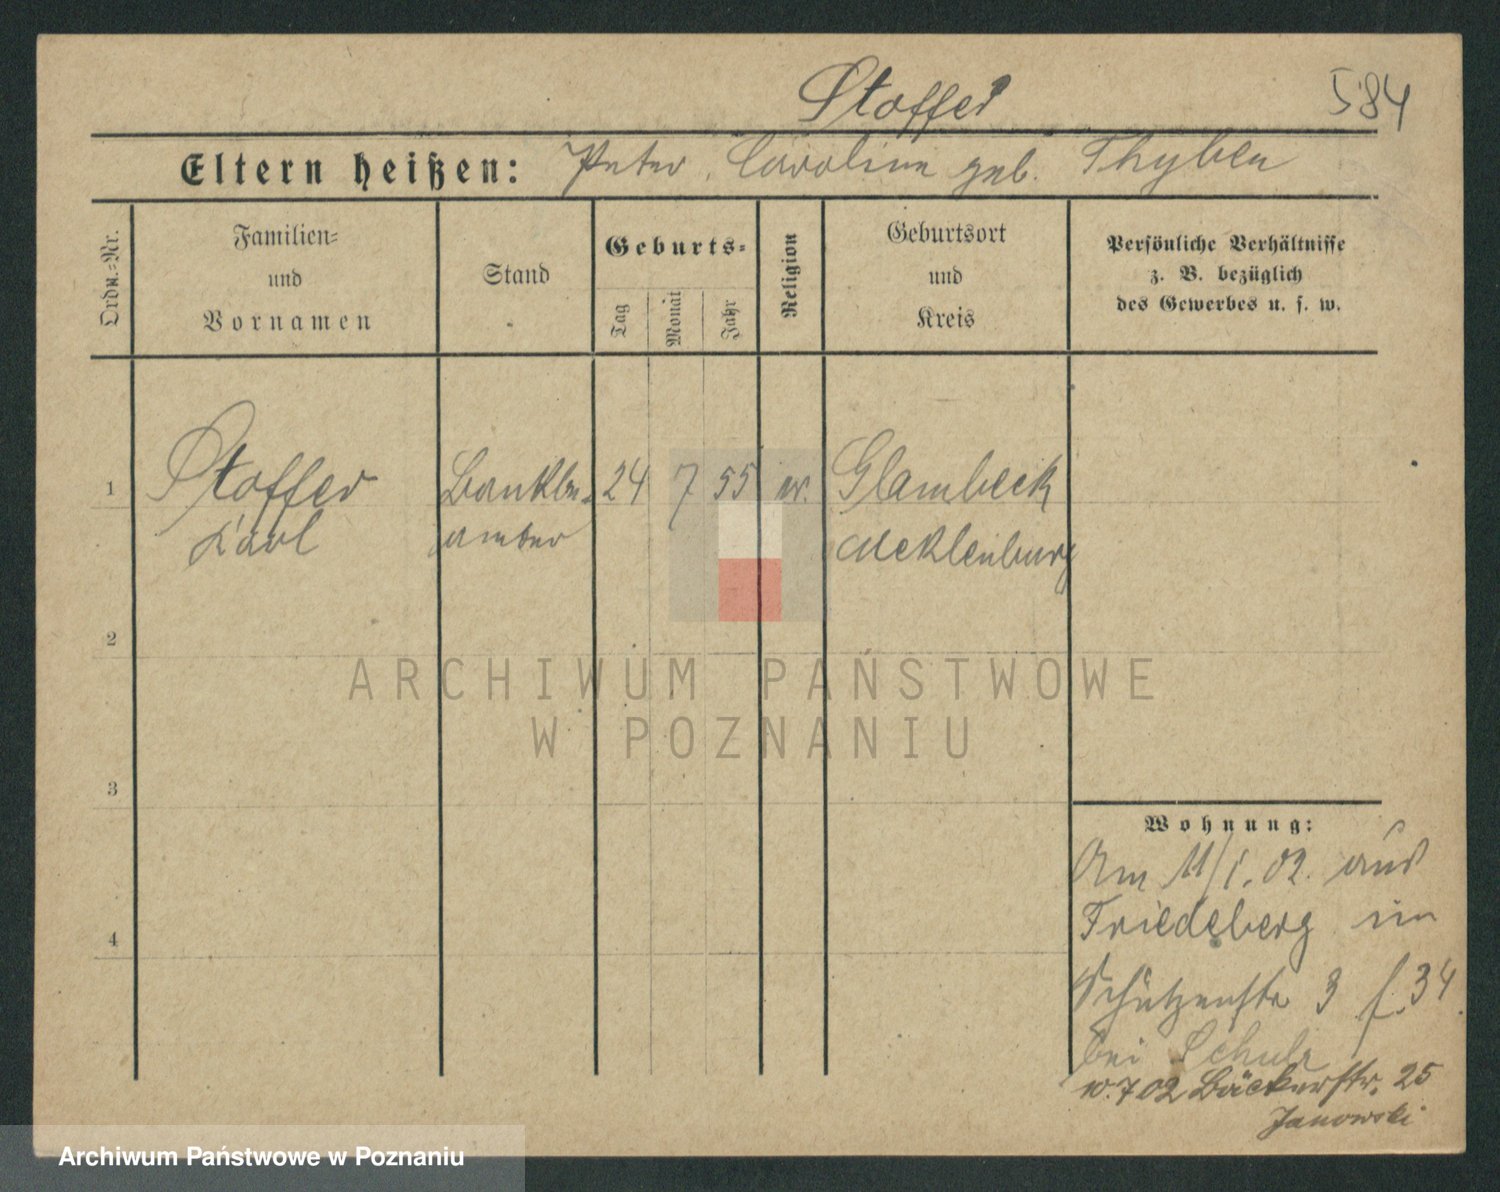 Stoffer
584
Eltern heißen: Peter, Caroline geb. Thyben
Ordn.-Nr.
Familien-
und
Vornamen
Stand
Geburts-
Tag
Monat
Jahr
Religion
Geburtsort
und
Kreis
Persönliche Verhältnisse
z. B. bezüglich
des Gewerbes u. s. w.
1
Stoffer
Karl
Bankbe-
amter
24 7 55 ev.
Glambeck
Mecklenburg
2
3
4
ARCHIWUM PAŃSTWOWE
W POZNANIU
Wohnung:
Am 11/1.02. aus
Friedeberg in
Schützenstr 3 f. 34
bei Schulz
10.7 02 Bäckerstr. 25
Janowski
Archiwum Państwowe w Poznaniu